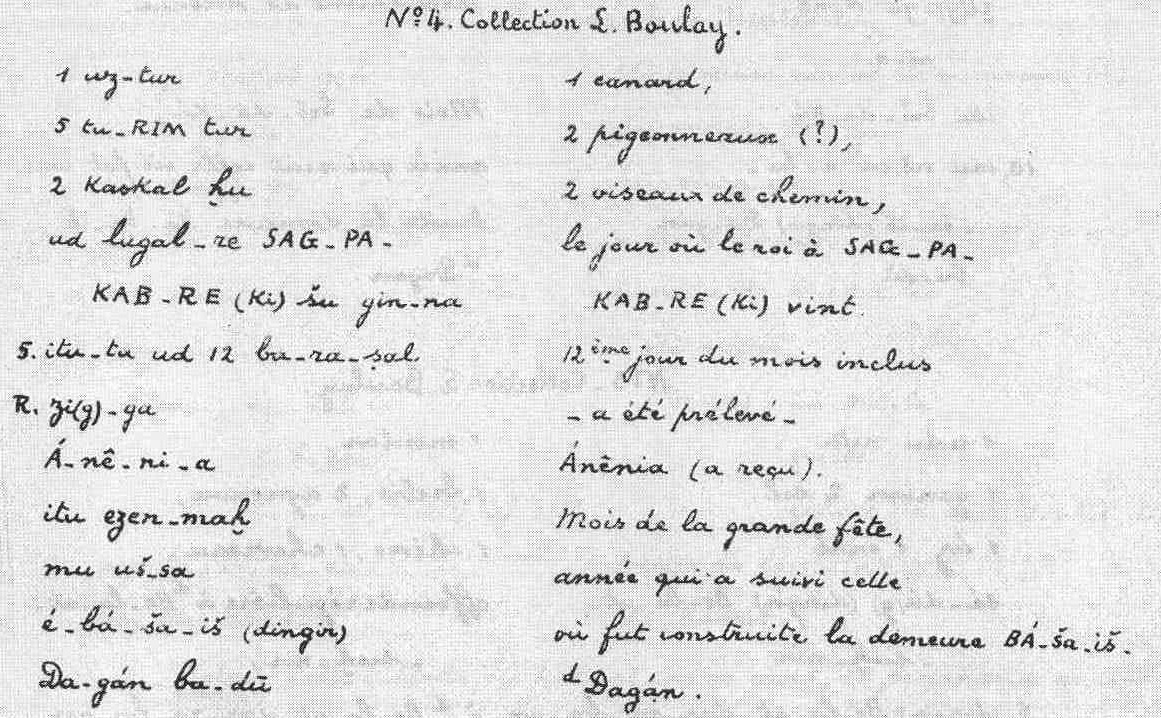 Nº 4. Collection L. Boulay.
1 uz-tur 1 canard,
5 tu-RIM tur 2 pigeonneaux (?),
2 Kaskal ḫu 2 oiseaux de chemin,
ud lugal-re SAG-PA- le jour où le roi à SAG-PA-
KAB-RE (Ki) šu gin-na KAB-RE (Ki) vint.
5. itu-tu ud 12 ba-ra-ṣal 12ième jour du mois inclus
R. zi(g)-ga - a été prélevé -
Á-nê-ni-a Ánênia (a reçu).
itu ezen-maḫ Mois de la grande fête,
mu uš-sa année qui a suivi celle
é-bá-ša-iš (dingir) où fut construite la demeure BÁ-ša-iš-
Da-gán ba-dū d Dagán.